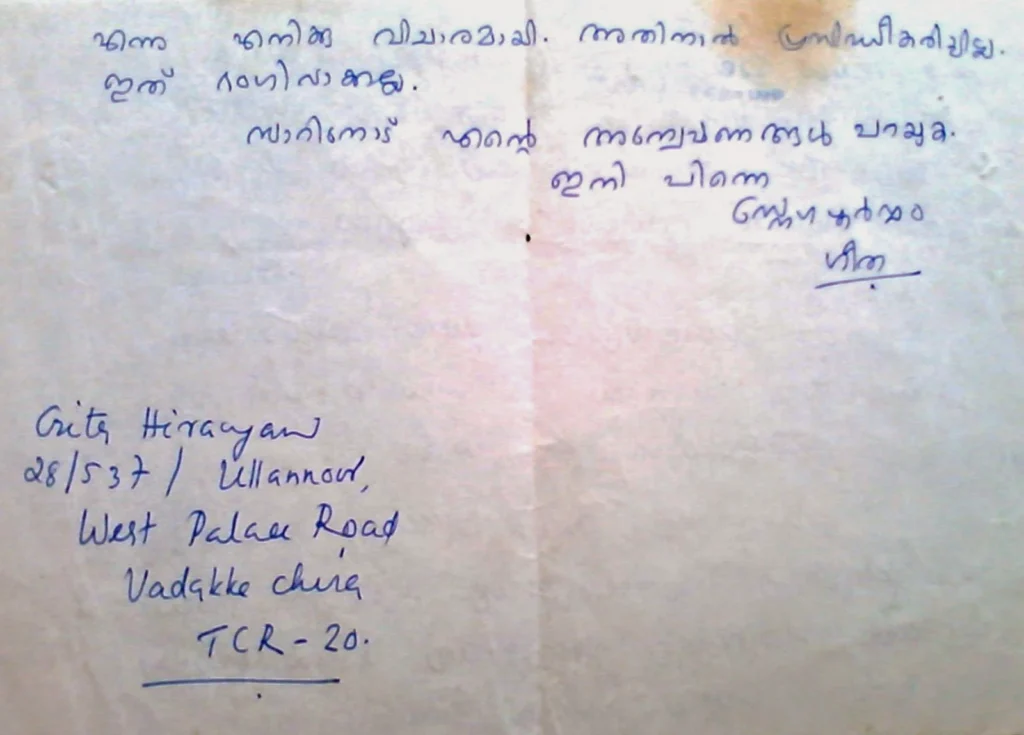 എന്നു എനിക്കു വിചാരമായി. അതിനാൽ പ്രസിദ്ധീകരിച്ചില്ല.
ഇത് ഭംഗിവാക്കല്ല.
സാറിനോട് എന്റെ അന്വേഷണങ്ങൾ പറയുക.
ഇനി പിന്നെ
സ്നേഹപൂർവ്വം
ഗീത
Gita Hiranyan
28/537/ Ullannoor,
West Palace Road
Vadakke chira
TCR - 20.